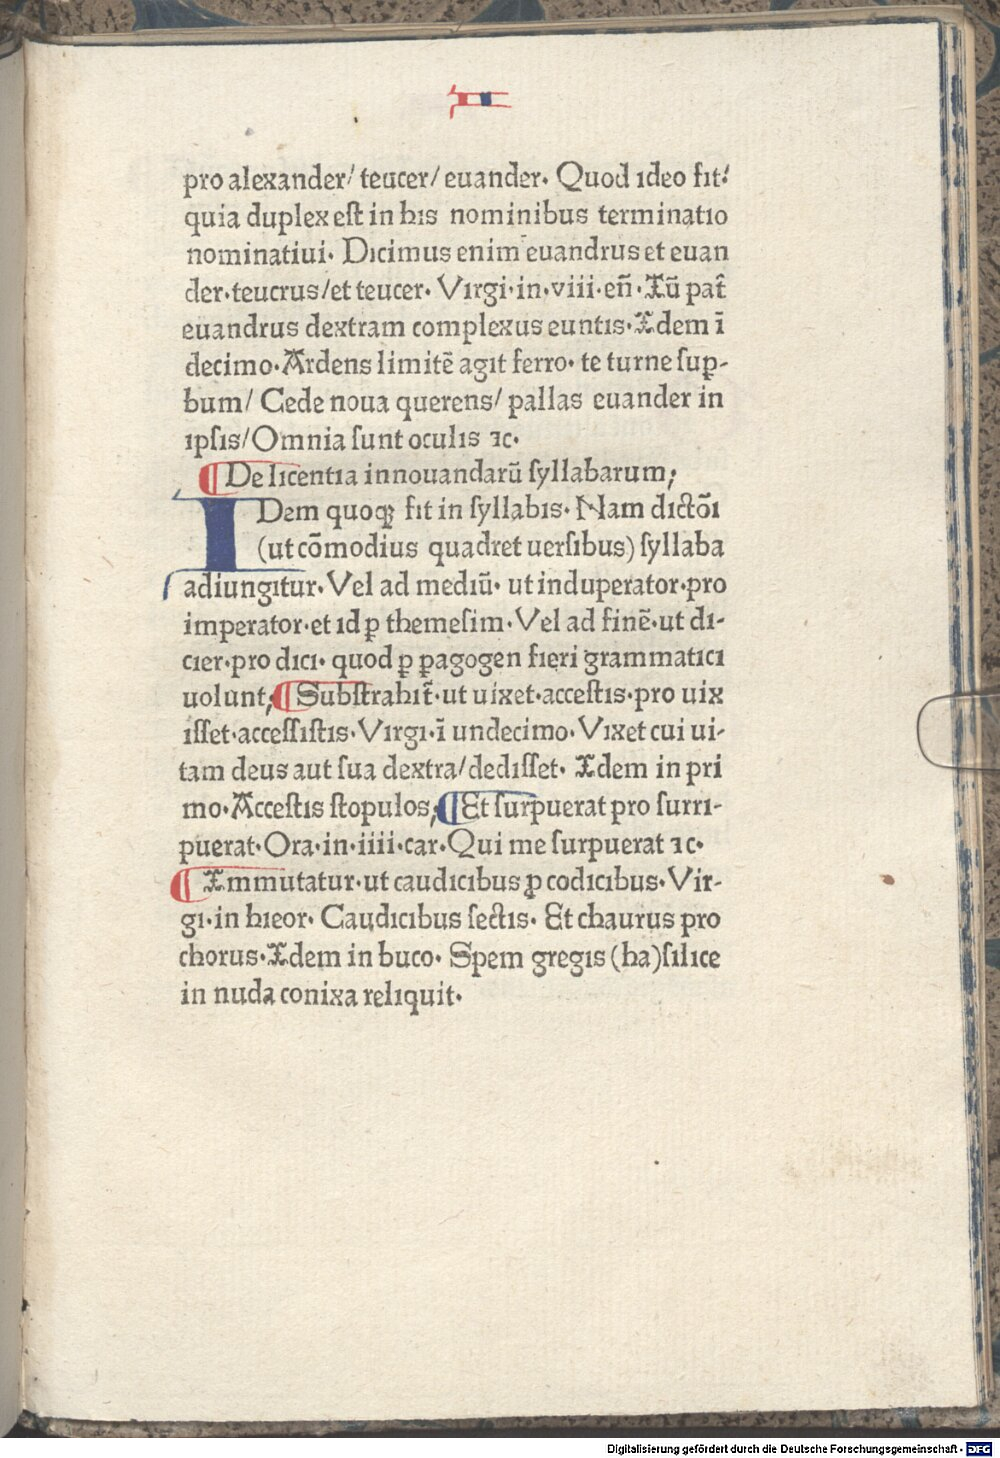 II
pro alexander/ teucer/ euander· Quod ideo fit:
quia duplex eſt in his nominibus terminatio
nominatiui· Dicimus enim euandrus et euan
der·teucrus/et teucer· Virgi·in·viii·en̄·Tū pat̄
euandrus dextram complexus euntis·Idem ī
decimo·Ardens limitē agit ferro· te turne ſuꝑ-
bum/ Cede noua querens/ pallas euander in
ipſis/Omnia ſunt oculis ⁊c·
¶De licentia innouandarū ſyllabarum;
IDem quoqꝫ fit in ſyllabis· Nam dictōi
(ut cōmodius quadret uerſibus) ſyllaba
adiungitur· Vel ad mediū· ut induperator·pro
imperator·et id ꝑ themeſim·Vel ad finē·ut di-
cier·pro dici· quod ꝑ ꝑagogen fieri grammatici
uolunt; ¶Subſtrahit̄·ut uixet·acceſtis·pro uix
iſſet·acceſſiſtis·Virgi·ī undecimo·Vixet cui ui-
tam deus aut ſua dextra/dediſſet· Idem in pri
mo·Acceſtis ſtopulos; ¶Et ſurpuerat pro ſurri-
puerat·Ora·in·iiii·car·Qui me ſurpuerat ⁊c·
¶Immutatur·ut caudicibus ꝓ codicibus·Vir-
gi·in hieor· Caudicibus ſectis· Et chaurus pro
chorus·Idem in buco· Spem gregis (ha)ſilice
in nuda conixa reliquit·
Digitalisierung gefördert durch die Deutsche Forschungsgemeinschaft - DFG